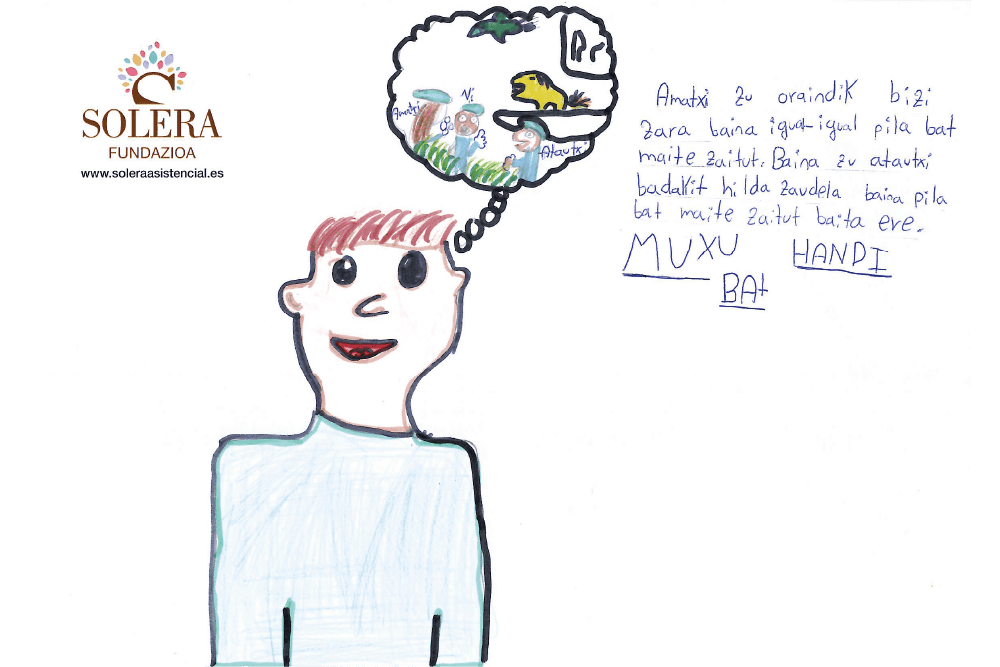 SOLERA
FUNDAZIOA
www.soleraasistencial.es
Amatxi
Ni
Atautxi
Amatxi zu oraindik bizi
zara baina igual-igual pila bat
maite zaitut. Baina zu atautxi
badakit hilda zaudela baina pila
bat maite zaitut baita ere.
MUXU HANDI
BAt